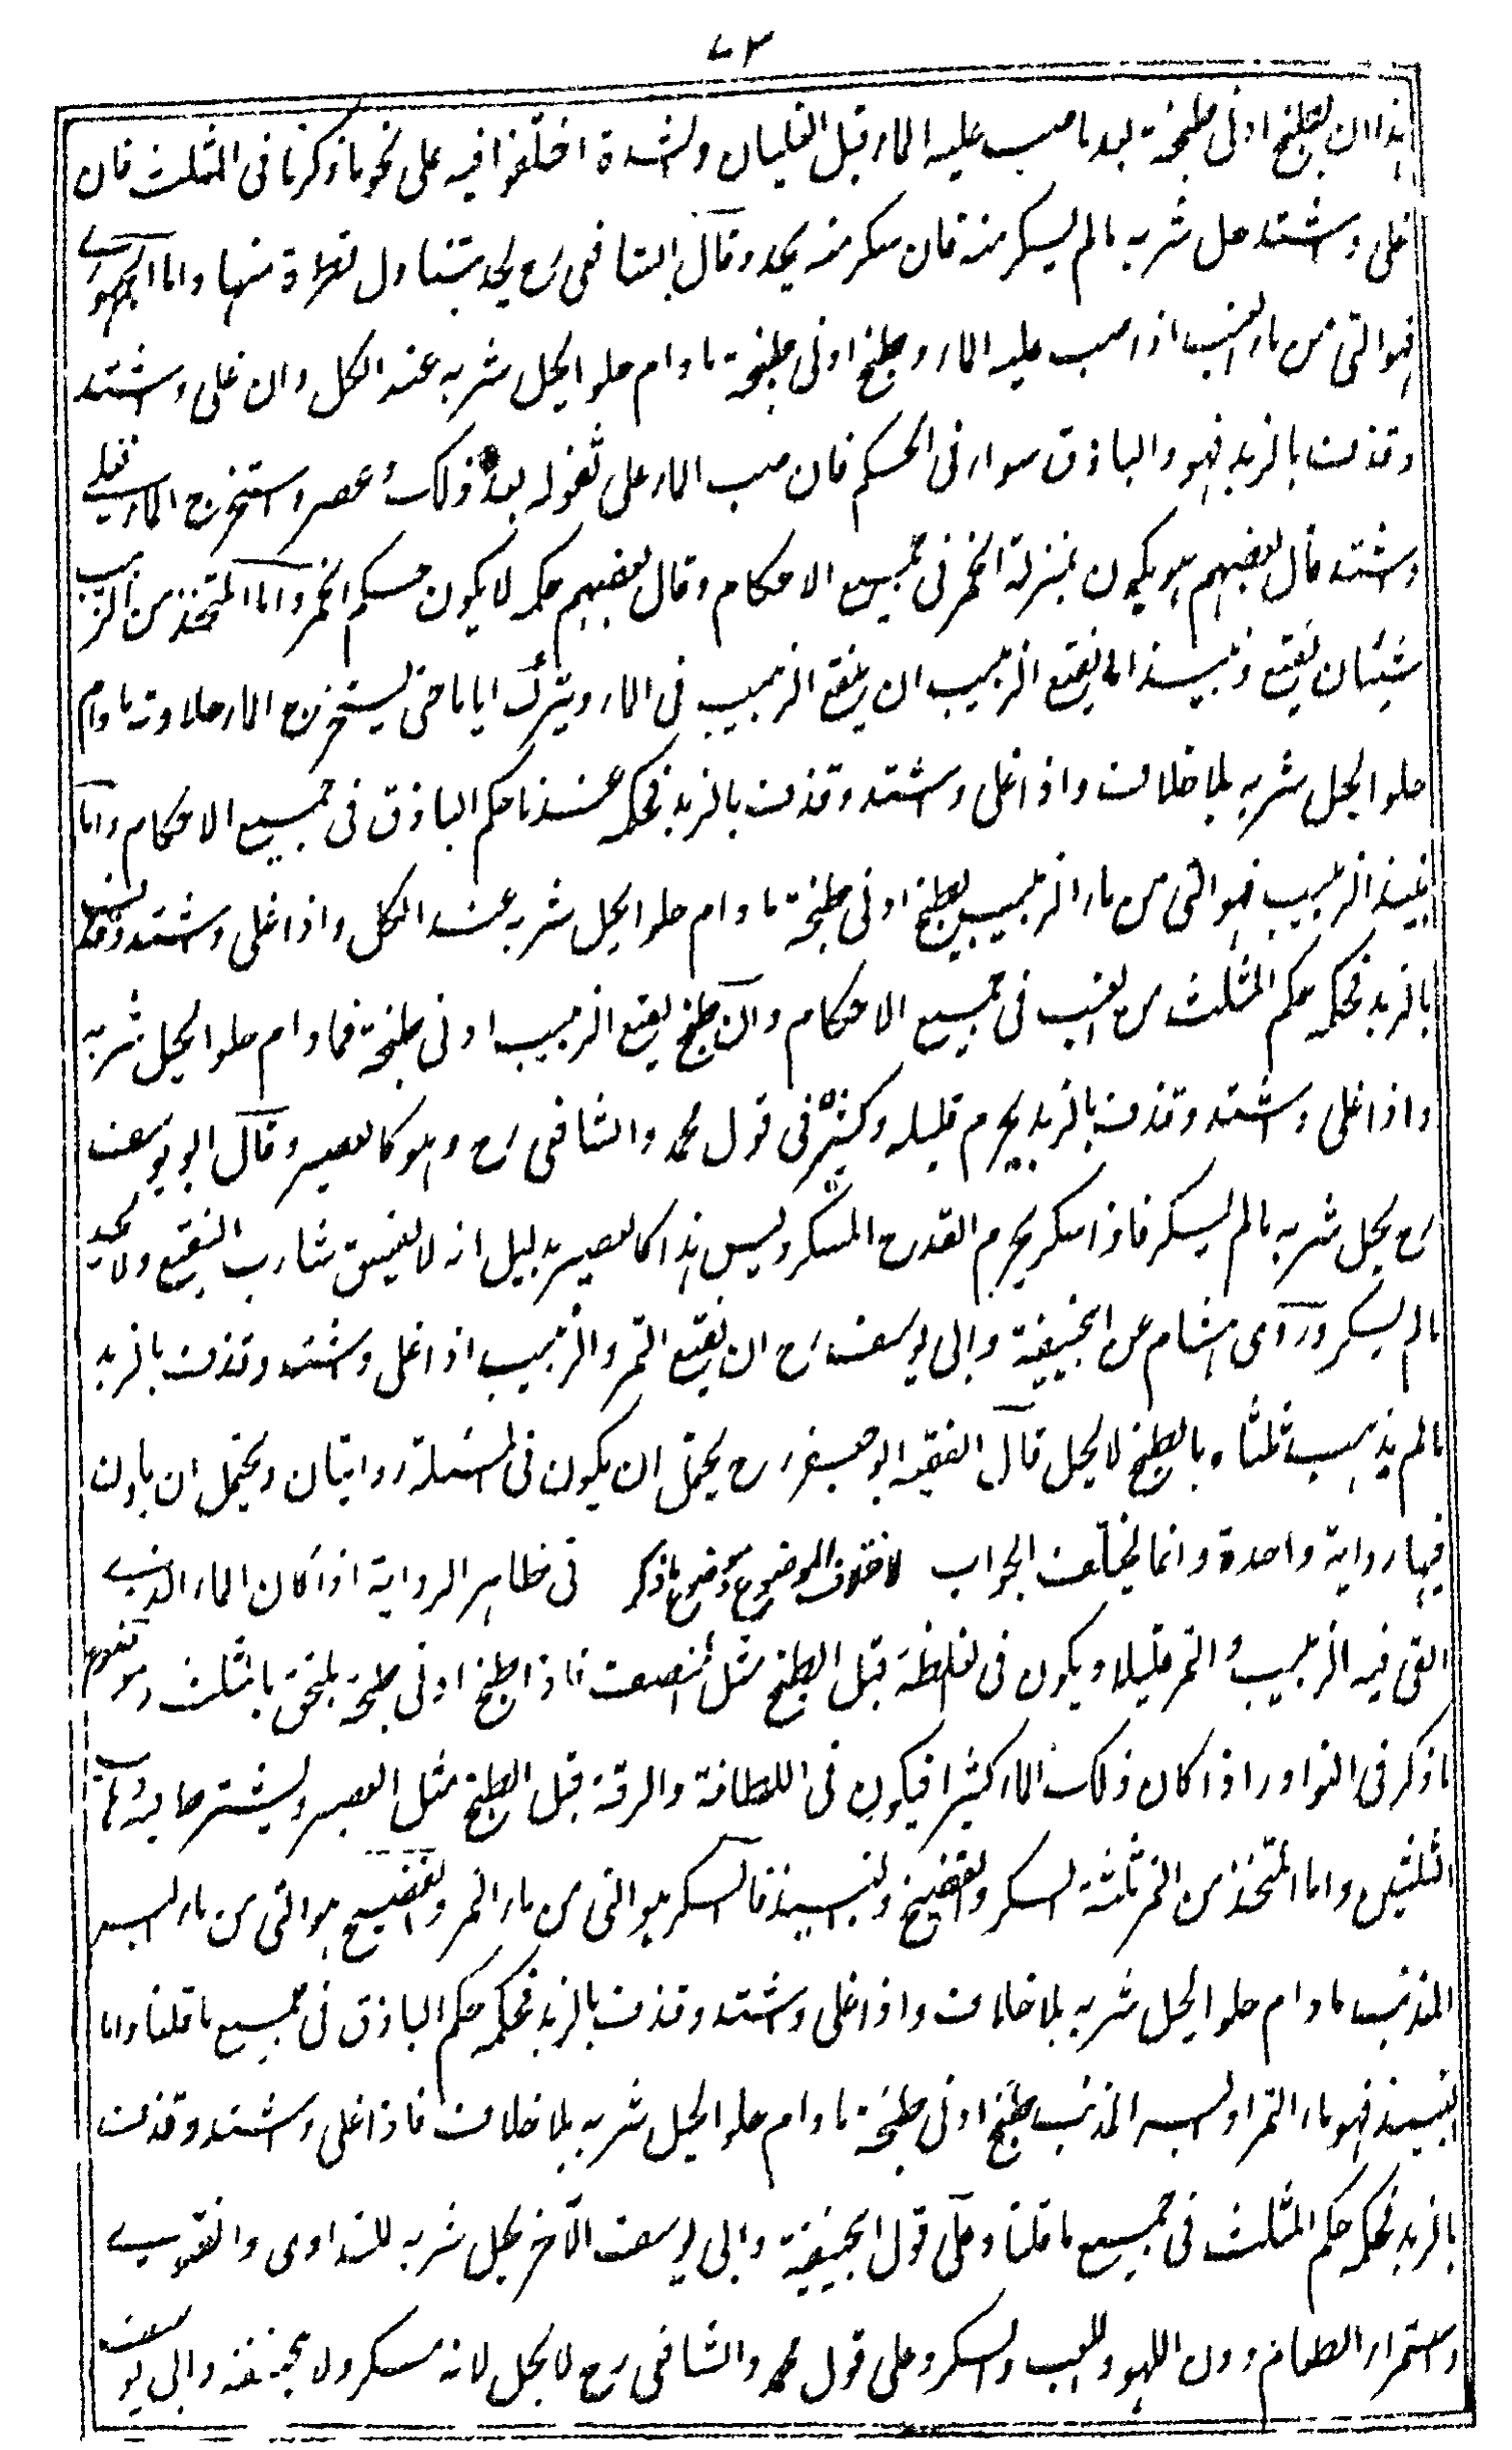 ٧٣
هذا ان يطبخ ادنى طبخة بعد ما صب عليه الماء قبل الغليان والشدة اختلفوا فيه على نحو ما ذكرنا فى المثلث فان
غلى واشتد حل شربه ما لم يسكر منه فان سكر منه يحد وقال الشافعى رح يحد بتناول قطرة منها واما الجمهورى
فهو التى من ماء العنب اذا صب عليه الماء وطبخ ادنى طبخة ما دام حلوا يحل شربه عند الكل وان غلى واشتد
وقذف بالزبد فهو والباذق سواء فى الحكم فان صب الماء على ثفوله بعد ذلك وعصر واستخرج الماء
واشتد قال بعضهم هو يكون بمنزلة الخمر فى جميع الاحكام وقال بعضهم حكمه لا يكون حكم الخمر واما المتخذ من الزبيب
شيئان نقيع ونبيذ اما نقيع الزبيب ان ينقع الزبيب فى الماء ويترك اياما حتى يستخرج الماء حلاوته ما دام
حلوا يحل شربه بلا خلاف واذا غلى واشتد وقذف بالزبد فحكمه عندنا حكم الباذق فى جميع الاحكام واما
نبيذ الزبيب فهو التى من ماء الزبيب يطبخ ادنى طبخة ما دام حلوا يحل شربه عند الكل واذا غلى واشتد وقذف
بالزبد فحكمه حكم المثلث من العنب فى جميع الاحكام وان طبخ نقيع الزبيب ادنى طبخة فما دام حلوا يحل شربه
واذا غلى واشتد وقذف بالزبد يحرم قليله وكثيره فى قول محمد والشافعى رح وهو كالعصير وقال ابو يوسف
رح يحل شربه ما لم يسكر فاذا سكر يحرم القدح المسكر وليس هذا كالعصير بدليل انه لا يفسق شارب النقيع ولا يحد
ما لم يسكر وروى هشام عن ابحنيفة وابى يوسف رح ان نقيع التمر والزبيب اذا غلى واشتد وقذف بالزبد
ما لم يذهب ثلثاه بالطبخ لا يحل قال الفقيه ابو جعفر رح يحتمل ان يكون فى المسئلة روايتان ويحتمل ان يكون
فيها رواية واحدة وانما يختلف الجواب لاختلاف الموضوع موضوع ما ذكر فى ظاهر الرواية اذا كان الماء الذى
القى فيه الزبيب والتمر قليلا ويكون فى الغلظة قبل الطبخ مثل المنصف فاذا طبخ ادنى طبخة يلحق بالمثلث وموضوع
ما ذكر فى النوادر اذا كان ذلك الماء كثيرا فيكون فى اللطافة والرقة قبل الطبخ مثل العصير ويشترط ذهاب
الثلثين واما المتخذ من التمر ثلثة السكر والفضيخ والنبيذ فالسكر هو التى من ماء التمر والفضيخ هو التى من ماء البسر
المذنب ما دام حلوا يحل شربه بلا خلاف واذا غلى واشتد وقذف بالزبد فحكمه حكم الباذق فى جميع ما قلنا واما
النبيذ فهو ماء التمر او البسر المذنب طبخ ادنى طبخة ما دام حلوا يحل شربه بلا خلاف فاذا غلى واشتد وقذف
بالزبد فحكمه حكم المثلث فى جميع ما قلنا وعلى قول ابحنيفة وابى يوسف الآخر يحل شربه للتداوى والتقوى
واستمراء الطعام دون اللهو واللعب والسكر وعلى قول محمد والشافعى رح لا يحل لانه مسكر ولابحنيفة وابى يوسف